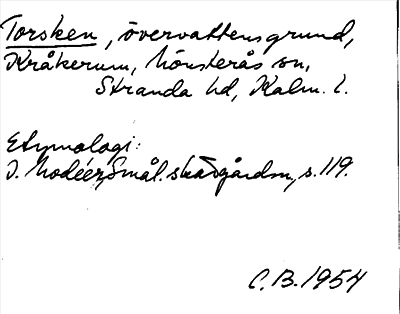 Torsken, övervattensgrund,
Kråkerum, Mönsterås sn,
Stranda hd, Kalm. l.
Etymologi:
I. Modéer, Smål. skärgårdsn., s. 119.
C.B. 1954